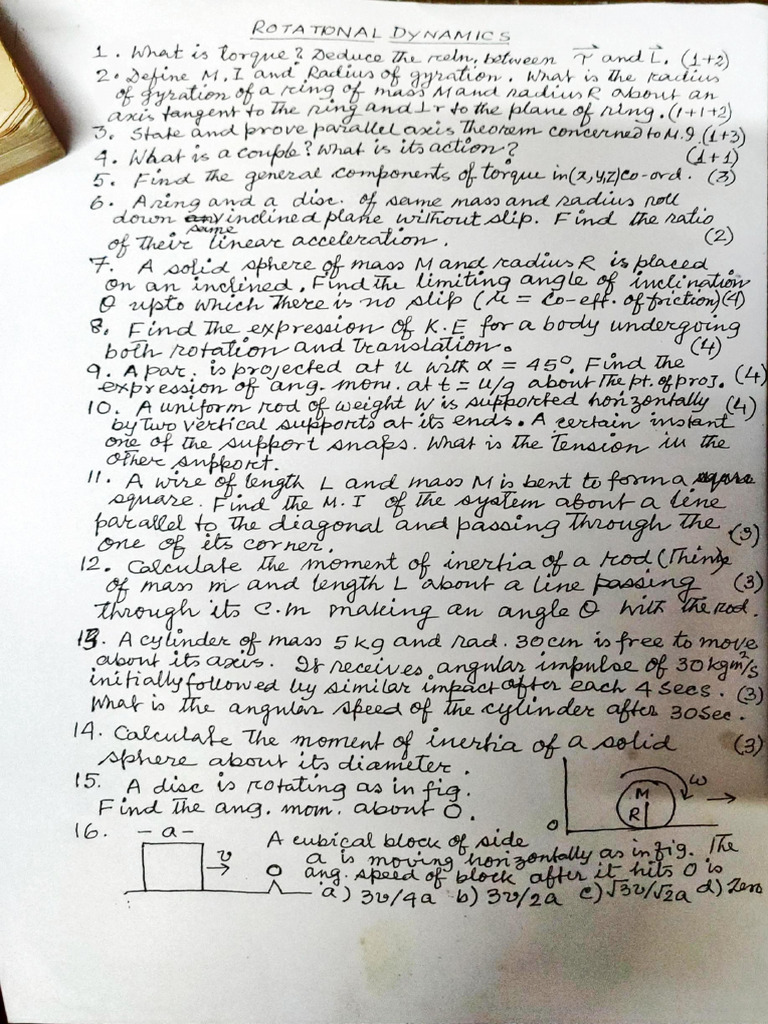 ROTATIONAL DYNAMICS
1. What is torque? Deduce the reln. between τ⃗ and L⃗. (1+2)
2. Define M.I and Radius of gyration. What is the radius
of gyration of a ring of mass M and radius R about an
axis tangent to the ring and ⊥r to the plane of ring. (1+1+2)
3. State and prove parallel axis Theorem concerned to M.I. (1+3)
4. What is a couple? What is its action? (1+1)
5. Find the general components of torque in (x,y,z) co-ord. (3)
6. A ring and a disc. of same mass and radius roll
down same inclined plane without slip. Find the ratio
of their linear acceleration. (2)
7. A solid sphere of mass M and radius R is placed
on an inclined. Find the limiting angle of inclination
θ upto which there is no slip (μ = co-eff. of friction) (4)
8. Find the expression of K.E for a body undergoing
both rotation and translation. (4)
9. A par. is projected at u with α = 45°. Find the
expression of ang. mom. at t = u/g about the pt. of proj. (4)
10. A uniform rod of weight W is supported horizontally (4)
by two vertical supports at its ends. A certain instant
one of the support snaps. What is the tension in the
other support.
11. A wire of length L and mass M is bent to form a
square. Find the M.I of the system about a line
parallel to the diagonal and passing through the
one of its corner. (3)
12. Calculate the moment of inertia of a rod (Thin)
of mass m and length L about a line passing (3)
through its C.m making an angle θ with the rod.
13. A cylinder of mass 5 kg and rad. 30cm is free to move
about its axis. It receives angular impulse of 30 kgm²/s
initially followed by similar impact after each 4 secs. (3)
What is the angular speed of the cylinder after 30 Sec.
14. Calculate the moment of inertia of a solid (3)
sphere about its diameter.
15. A disc is rotating as in fig.
Find the ang. mom. about O.
ω
M
R
O
16. - a -
v
O
A cubical block of side
a is moving horizontally as in fig. The
ang. speed of block after it hits O is
a) 3v/4a b) 3v/2a c) √3v/√2a d) Zero